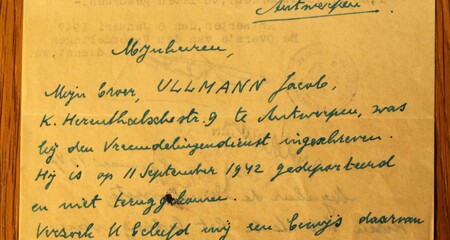 Antwerpen.
Mijnheeren,
Mijn broer, ULLMANN Jacob,
K. Herenthalschestr. 9 te Antwerpen, was
bij den Vreemdelingendienst ingeschreven.
Hij is op 11 September 1942 gedeporteerd
en niet teruggekomen.
Verzoek U beleefd mij een bewijs daarvan